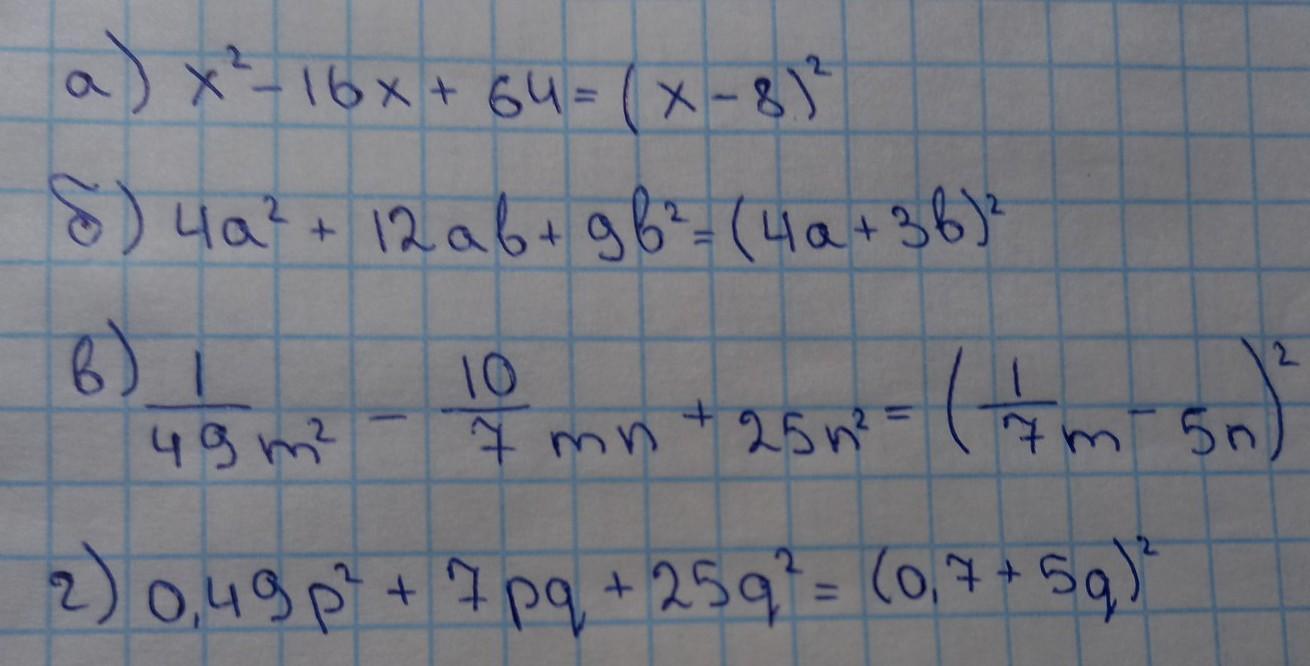 а) x² - 16x + 64 = (x - 8)²
б) 4a² + 12ab + 9b² = (4a + 3b)²
в) 1/49 m² - 10/7 mn + 25n² = (1/7 m - 5n)²
г) 0,49p² + 7pq + 25q² = (0,7 + 5q)²